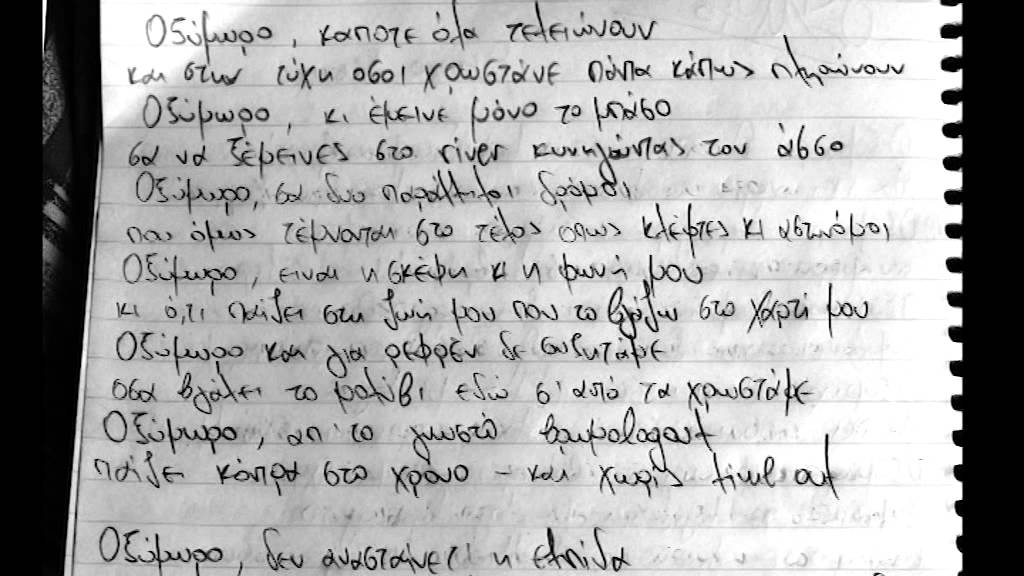 Οξύμωρο, καποτε όλα τελειώνουν
και στην τύχη οσοι χρωστάνε πάντα κάπως πληρώνουν
Οξύμωρο, κι έμεινε μόνο το μπάσο
σα να ξέμεινες στο river κυνηγώντας τον άσσο
Οξύμωρο, σα δυο παράλληλοι δρόμοι
που όμως τέμνονται στο τέλος οπως κλέφτες κι αστυνόμοι
Οξύμωρο, ειναι η σκέψη κι η φωνή μου
κι ό,τι παίζει στη ζωή μου που το βγάζω στο χαρτί μου
Οξύμωρο και για ρεφρέν δε συζητάμε
οσα βγάλει το μολύβι εδώ σ'αυτό τα χρωστάμε
Οξύμωρο, απ'το γνωστό
παίζει κόντρα στο χρόνο - και χωρίς time out
Οξύμωρο, δεν ανασταίνετ' η ελπίδα